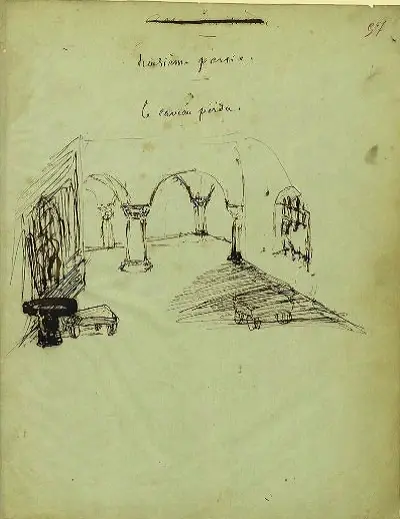 troisième partie.
Le caveau perdu.